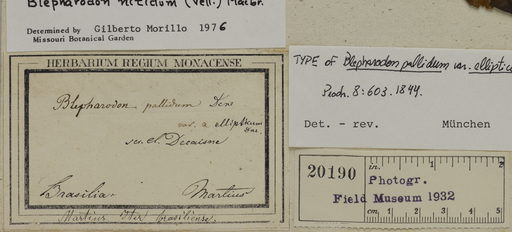 Blepharodon nitidum (Vell.) Macbr.
Determined by Gilberto Morillo 1976
Missouri Botanical Garden
HERBARIUM REGIUM MONACENSE
Blepharodon pallidum Dcne
var. a ellipticum
Dne.
sec. cl. Decaisne
Brasilia. Martius
Martius Iter brasiliense.
TYPE of Blepharodon pallidum var. elliptic
Prodr. 8:603. 1844.
Det. – rev. München
20190
in. 1 2
Photogr.
Field Museum 1932
cm. 1 2 3 4 5